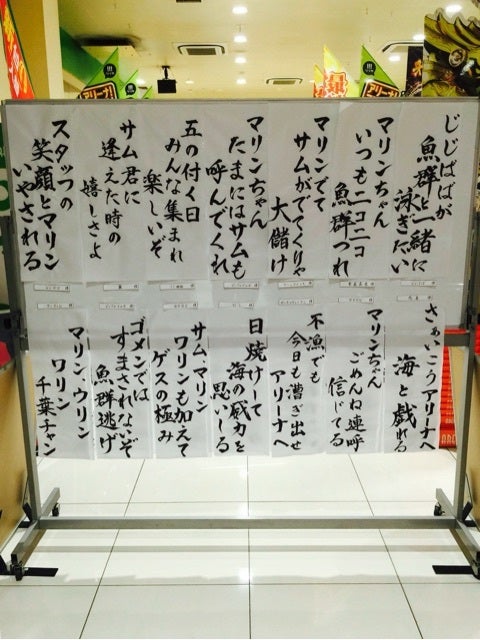 じじばばが
魚群と一緒に
泳ぎたい
マリンちゃん
いつもニコニコ
魚群つれ
マリンでて
サムがでてくりゃ
大儲け
マリンちゃん
たまにはサムも
呼んでくれ
五の付く日
みんな集まれ
楽しいぞ
サム君に
逢えた時の
嬉しさよ
スタッフの
笑顔とマリン
いやされる
さぁいこうアリーナへ
海と戯れる
マリンちゃん
ごめんね連呼
信じてる
不漁でも
今日も漕ぎ出せ
アリーナへ
日焼けーて
海の戦力を
思いーる
サム、マリン
ワリンも加えて
ゲスの極み
ゴメンでは
すまされないぞ
魚群逃げ
マリン、ウリン
ワリン
千葉チャン